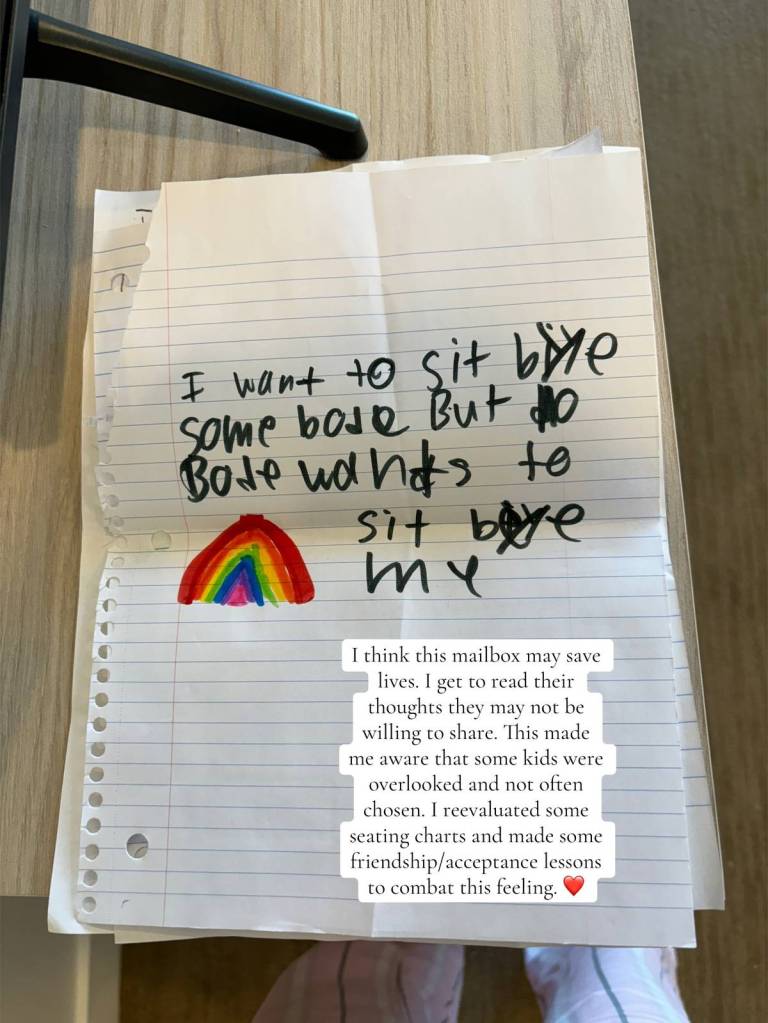 I want to sit bye
some bode But no
Bode wants to
sit bye
me
I think this mailbox may save
lives. I get to read their
thoughts they may not be
willing to share. This made
me aware that some kids were
overlooked and not often
chosen. I reevaluated some
seating charts and made some
friendship/acceptance lessons
to combat this feeling. ❤️